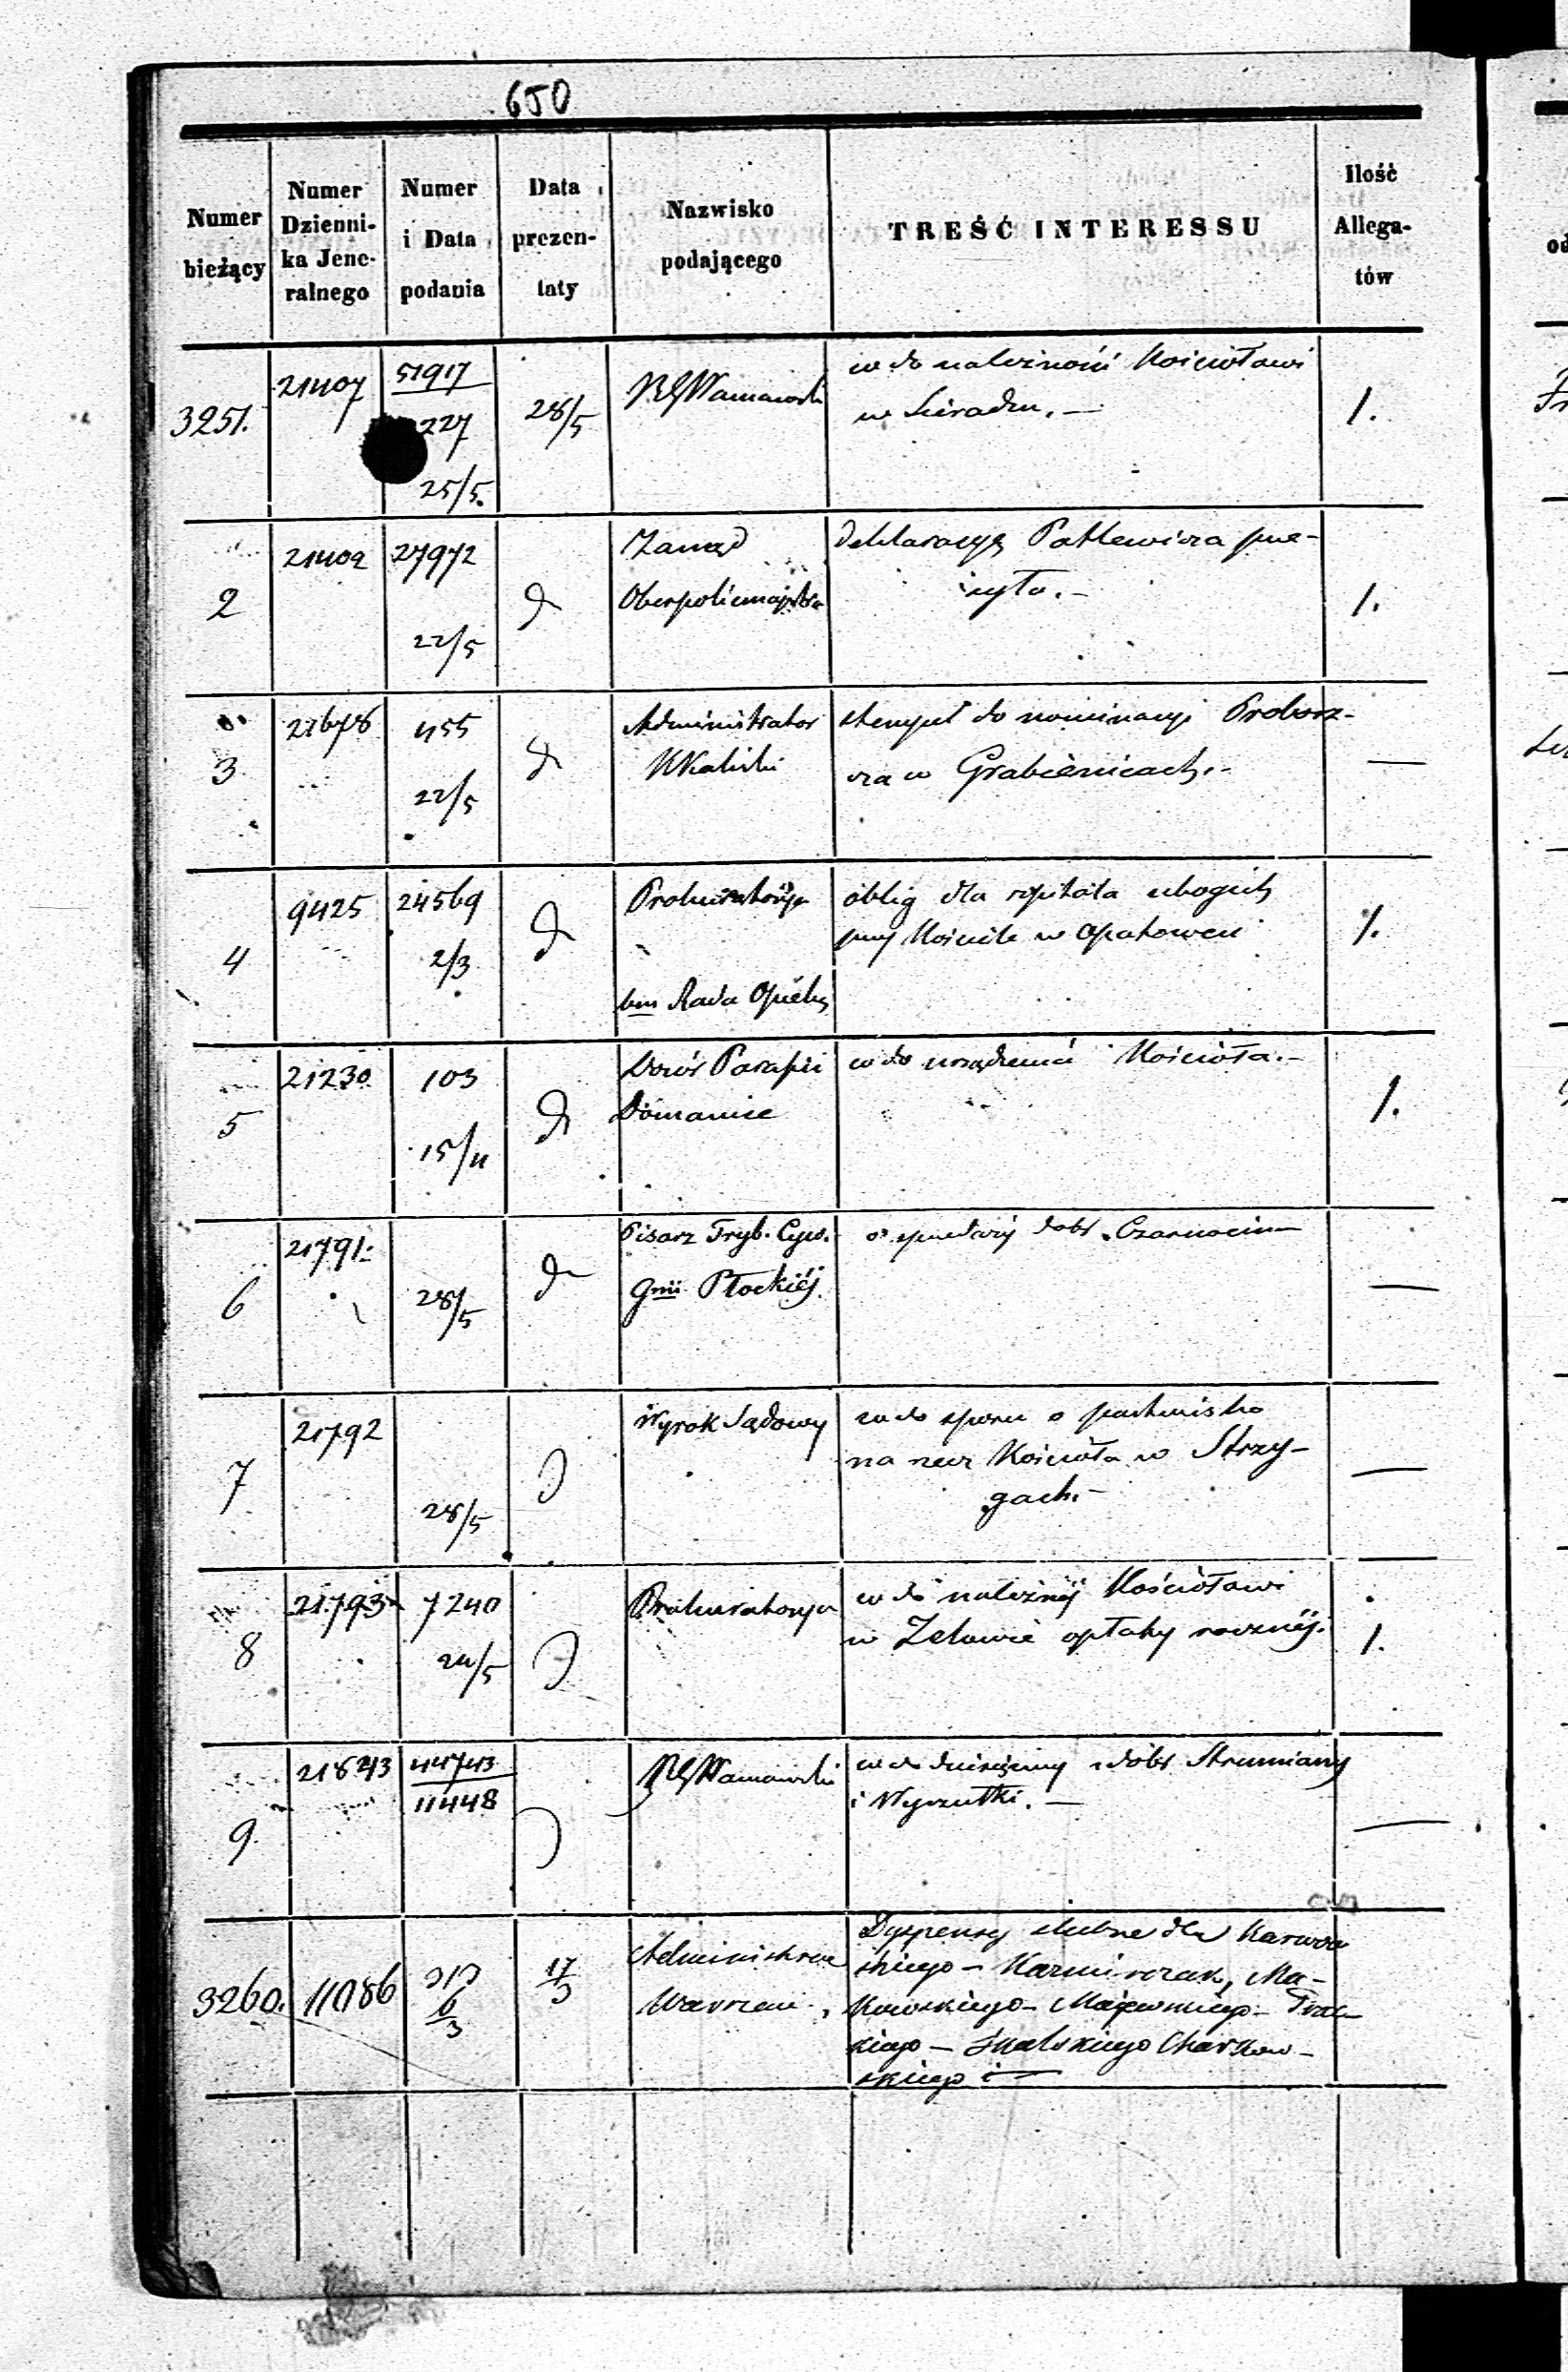 650
Numer bieżący
Numer Dzienni-ka Jene-ralnego
Numer i Data podania
Data prezen-taty
Nazwisko podającego
TREŚĆ INTERESSU
Ilość Allega-tów
3251.
21407
51917
227
25/5.
28/5
w do należności Kościołowi
w Sieradzu. —
1.
2
21402
27972
22/5
d
Zarząd
Oberpolicmajstra
deklaracyę Patlewicza prze-
syła. -
1.
3
21678
455
22/5
d
Administrator
Kaliski
stempel do nominacyi Probosz-
cza w Grabienicach. -
—
4
9425
24569
2/3
d
Prokuratorya
bm Rada Opieku
oblig dla szpitala ubogich
przy Kościele w Opatowcu
1.
5
21230
103
15/4
d
Dozór Parafii
Domanice
w do urządzenia Kościoła. -
1.
6
21791.
28/5
d
Pisarz Tryb. Cyw.
Gnii Płockiéj.
o sprzedaży dóbr Czarnocin
—
7
21792
28/5
Wyrok Sądowy
w do sporu o pastwisko
na rzecz Kościoła w Strzy-
gach. -
—
8
21793
7240
24/5
Prokuratorya
w do należnéj Kościołowi
w Zelowie opłaty rocznéj.
1.
9.
21643
44743
11448
w do dzierżawy dóbr Strumiany
i Wyczułki. —
—
3260.
11086
313
6/3
17/3
Administrator
Warszaw
Dyspensy ślubne dla Karwow
skiego - Kazmierczak, Ma-
kowskiego - Majewskiego -
kiego - Skalskiego Charkow-
skiego i —